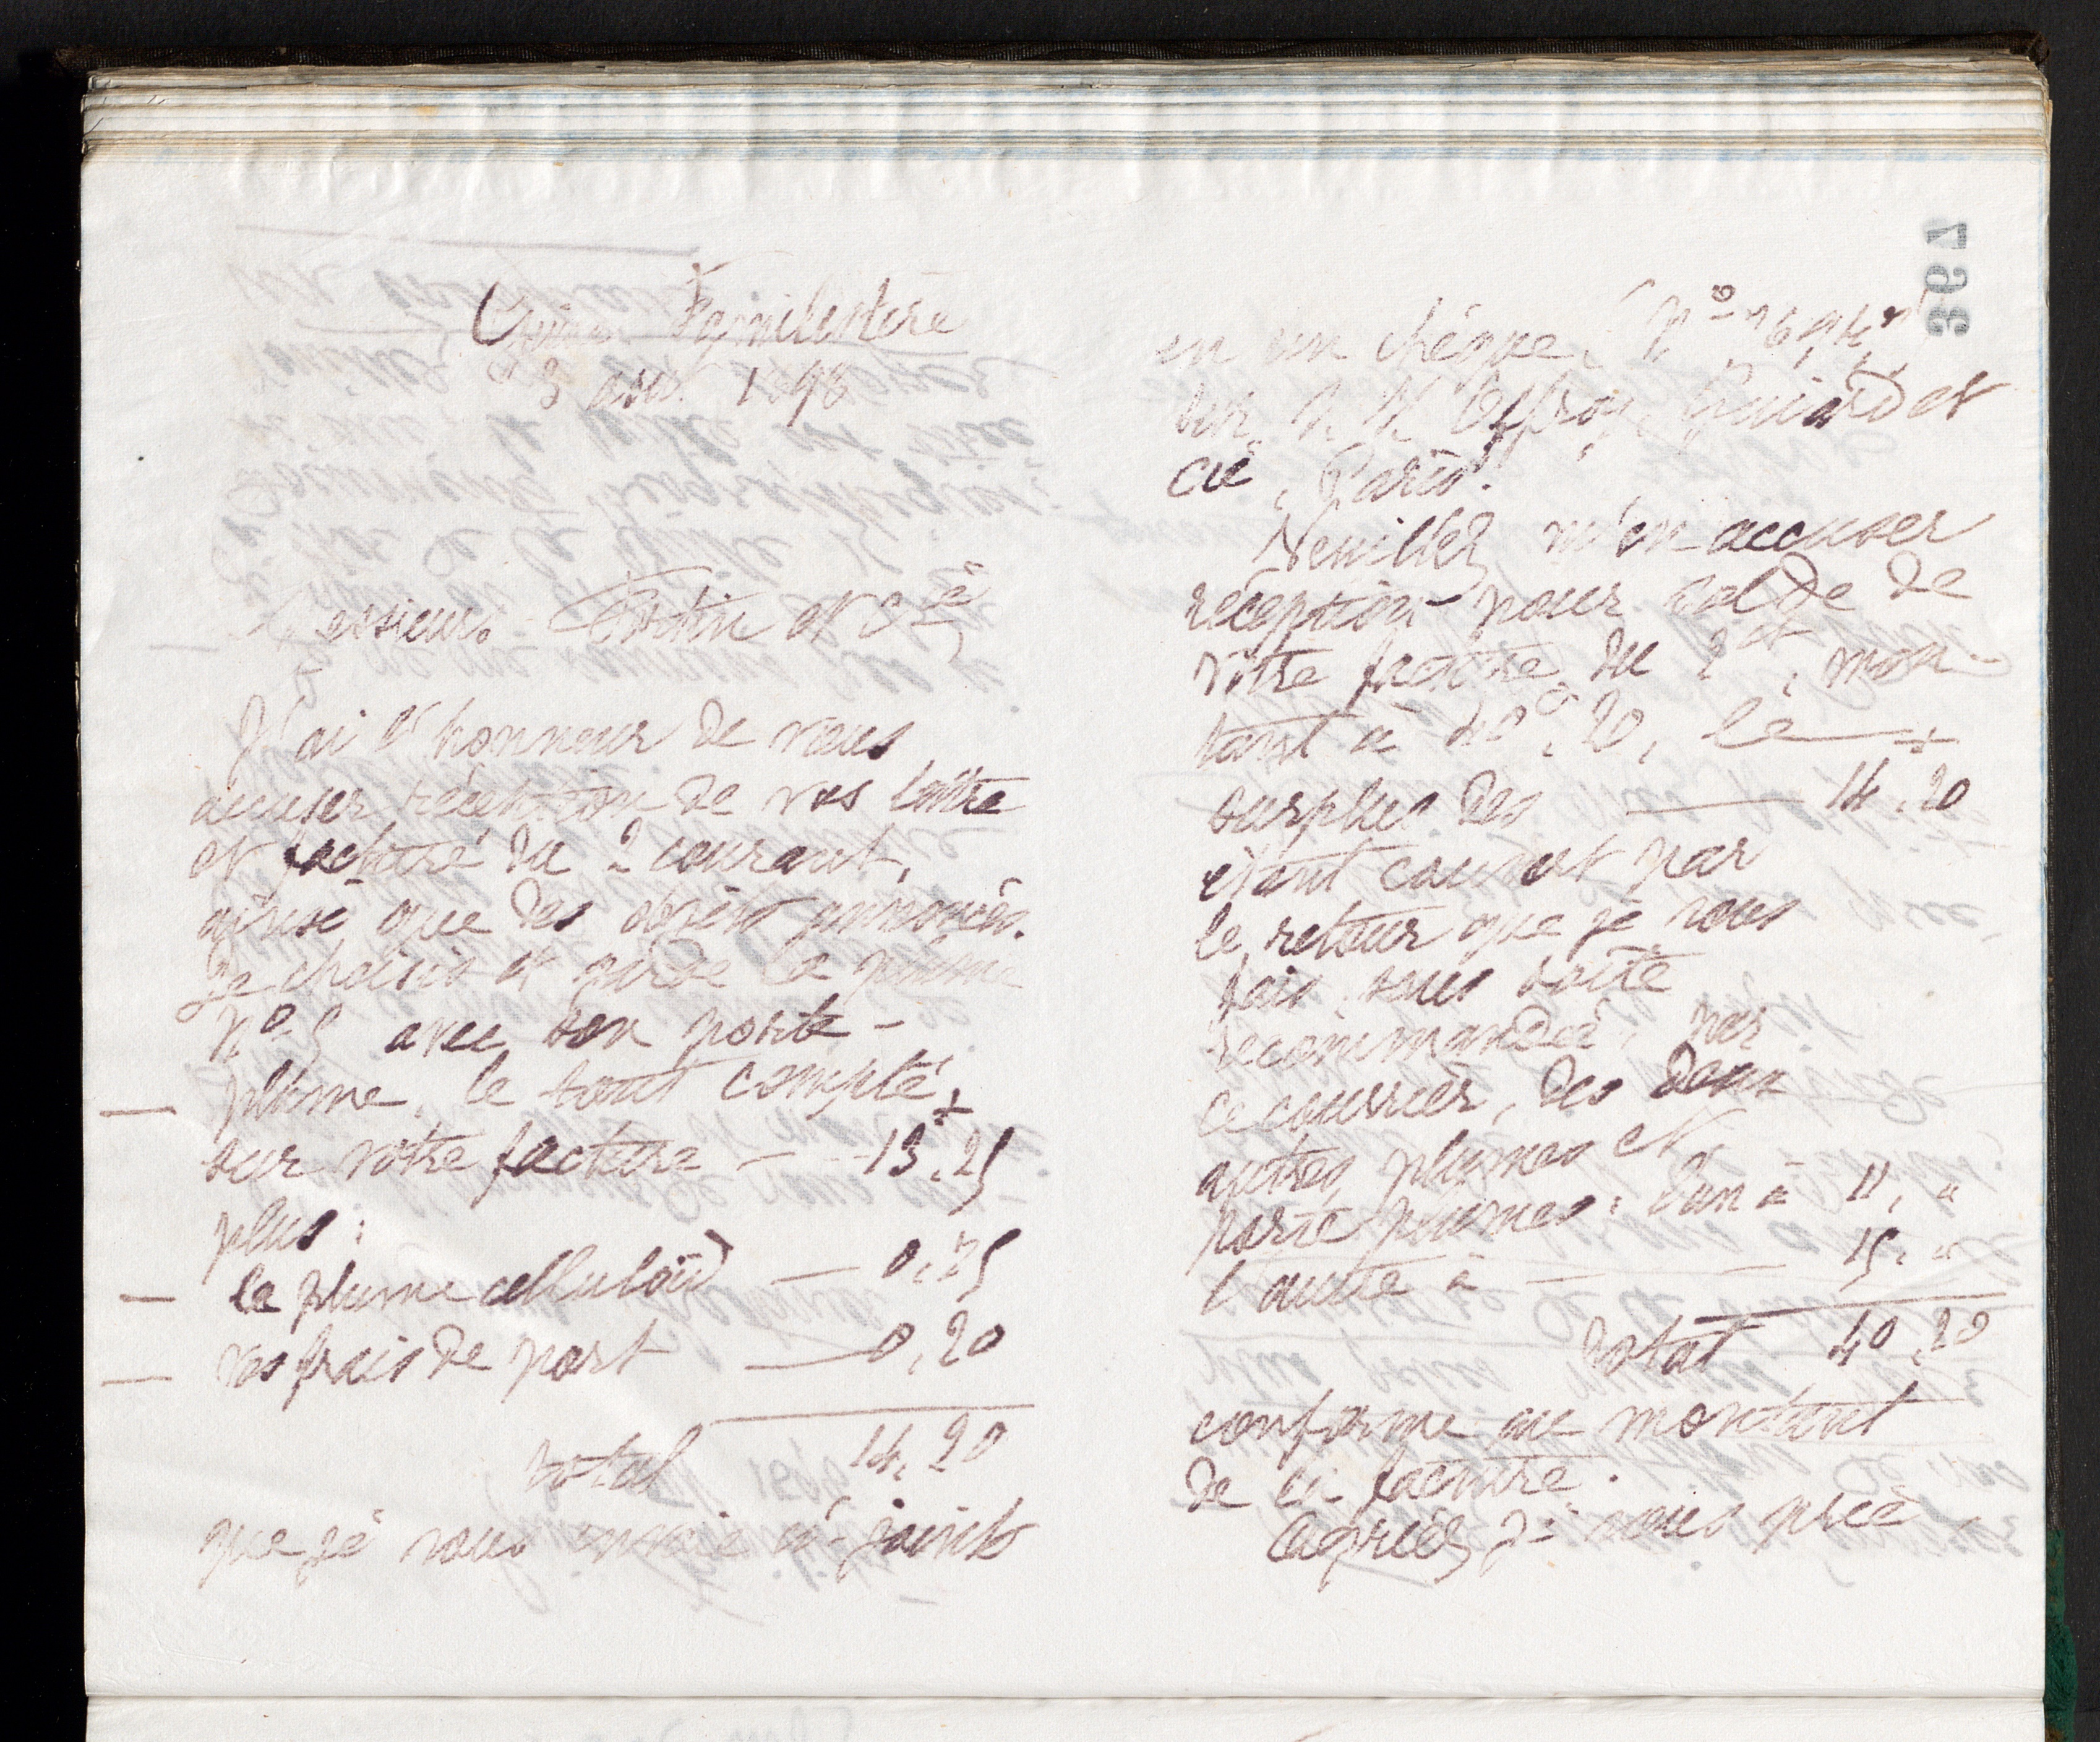 Guise Familistère
3 août 1898
Messieurs et Cie
J'ai l'honneur de vous
accuser réception de vos lettre
et facture du 2 courant,
ainsi que des objets annoncés.
Je choisis et garde la plume
No 5 avec son porte-
plume, le tout compté
sur votre facture — 13,25
plus :
— la plume celluloïd — 0,75
— vos frais de port — 0,20
total 14,20
que je vous envoie ci-joints
367
en un chèque, No
sur M M Offroy, Guiard et
Cie, Paris.
Veuillez m'en accuser
réception pour solde de
votre facture du 2 ct, mon-
tant à 40f,20, le
surplus des — 14,20
étant couvert par
le retour que je vous
fais, sous boîte
recommandée, par
ce courrier, des deux
autres plumes et
porte plumes : l'un à 11, "
l'autre à — 15, "
total 40,20
conforme au montant
de la facture.
Agréez, je vous prie,